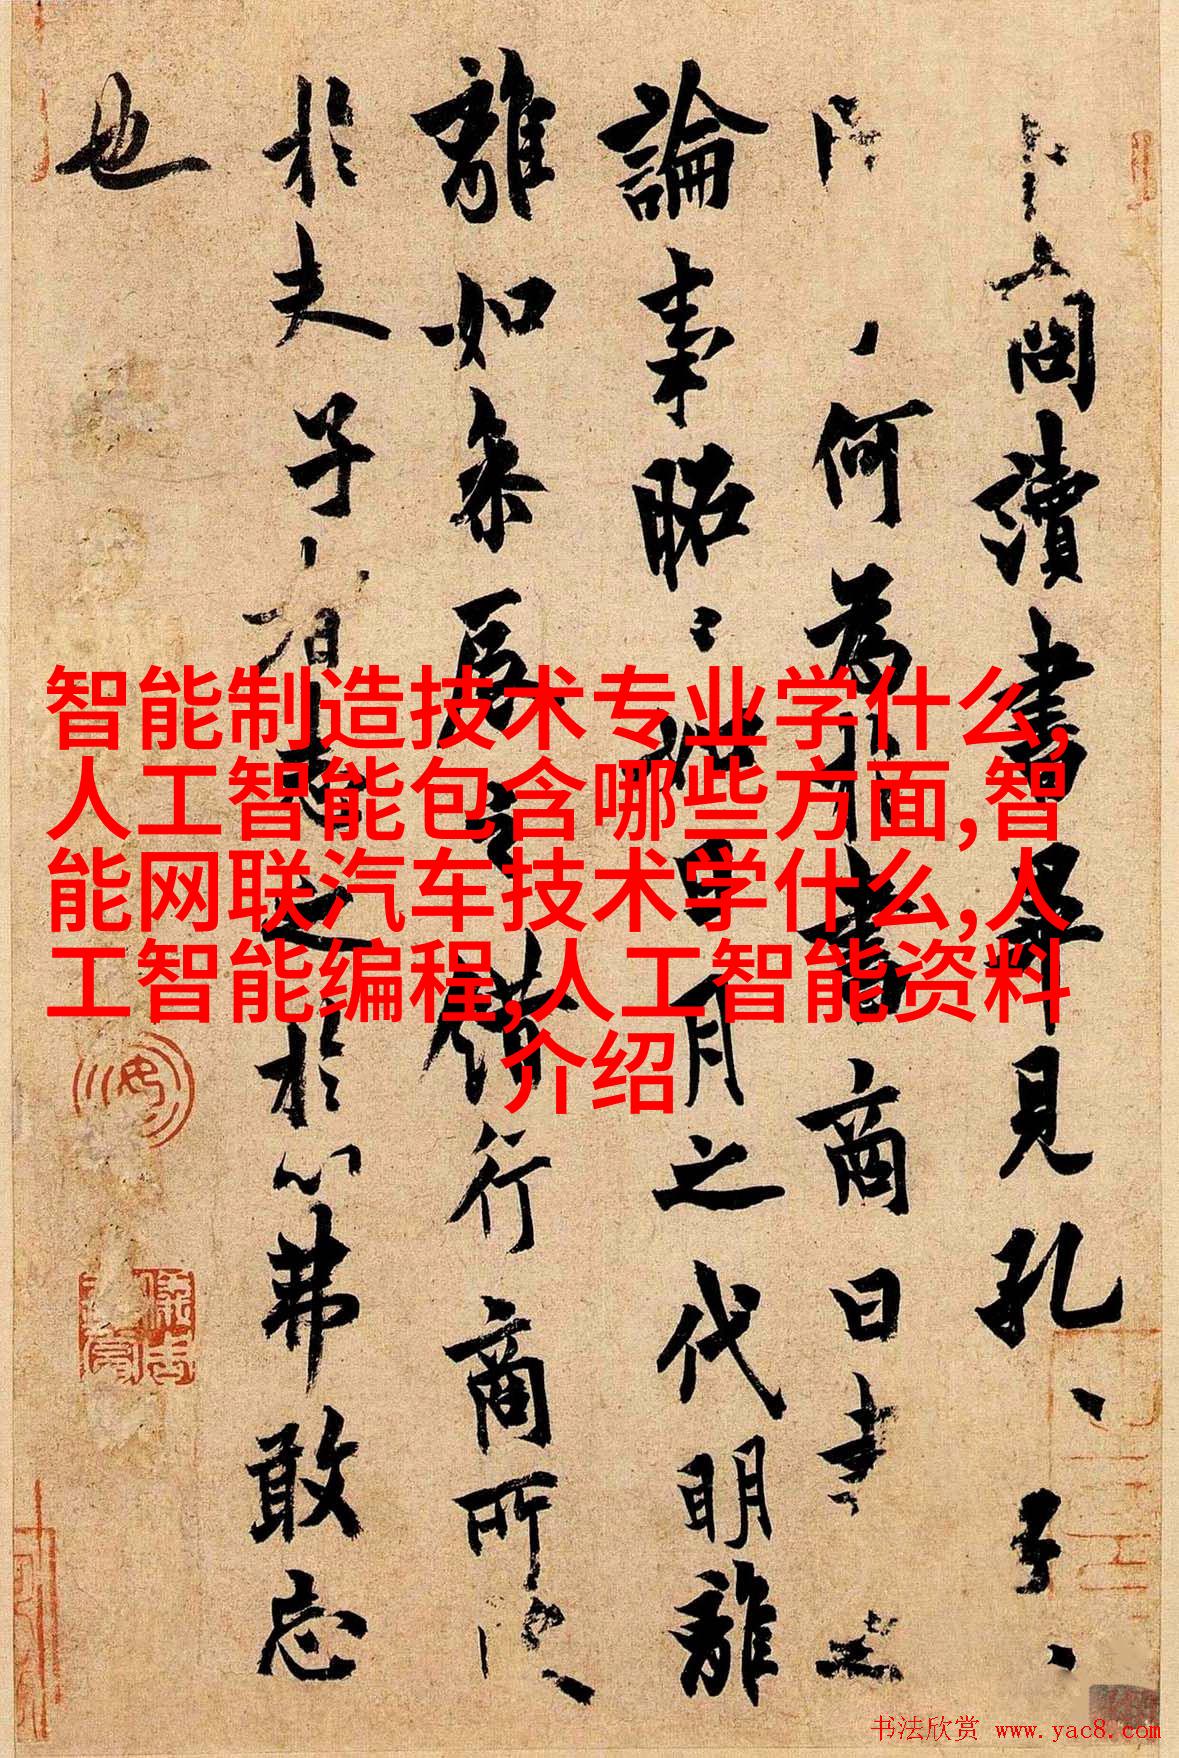 讀書畢見孔子
何為於書商曰書之
論事昭〻如日月之代明離
離如參辰之錯行商所
於夫子者志之於心弗敢忘
也
智能制造技术专业学什么,
人工智能包含哪些方面,智
能网联汽车技术学什么,人
工智能编程,人工智能资料
介绍
书法欣赏 www.yac8.com